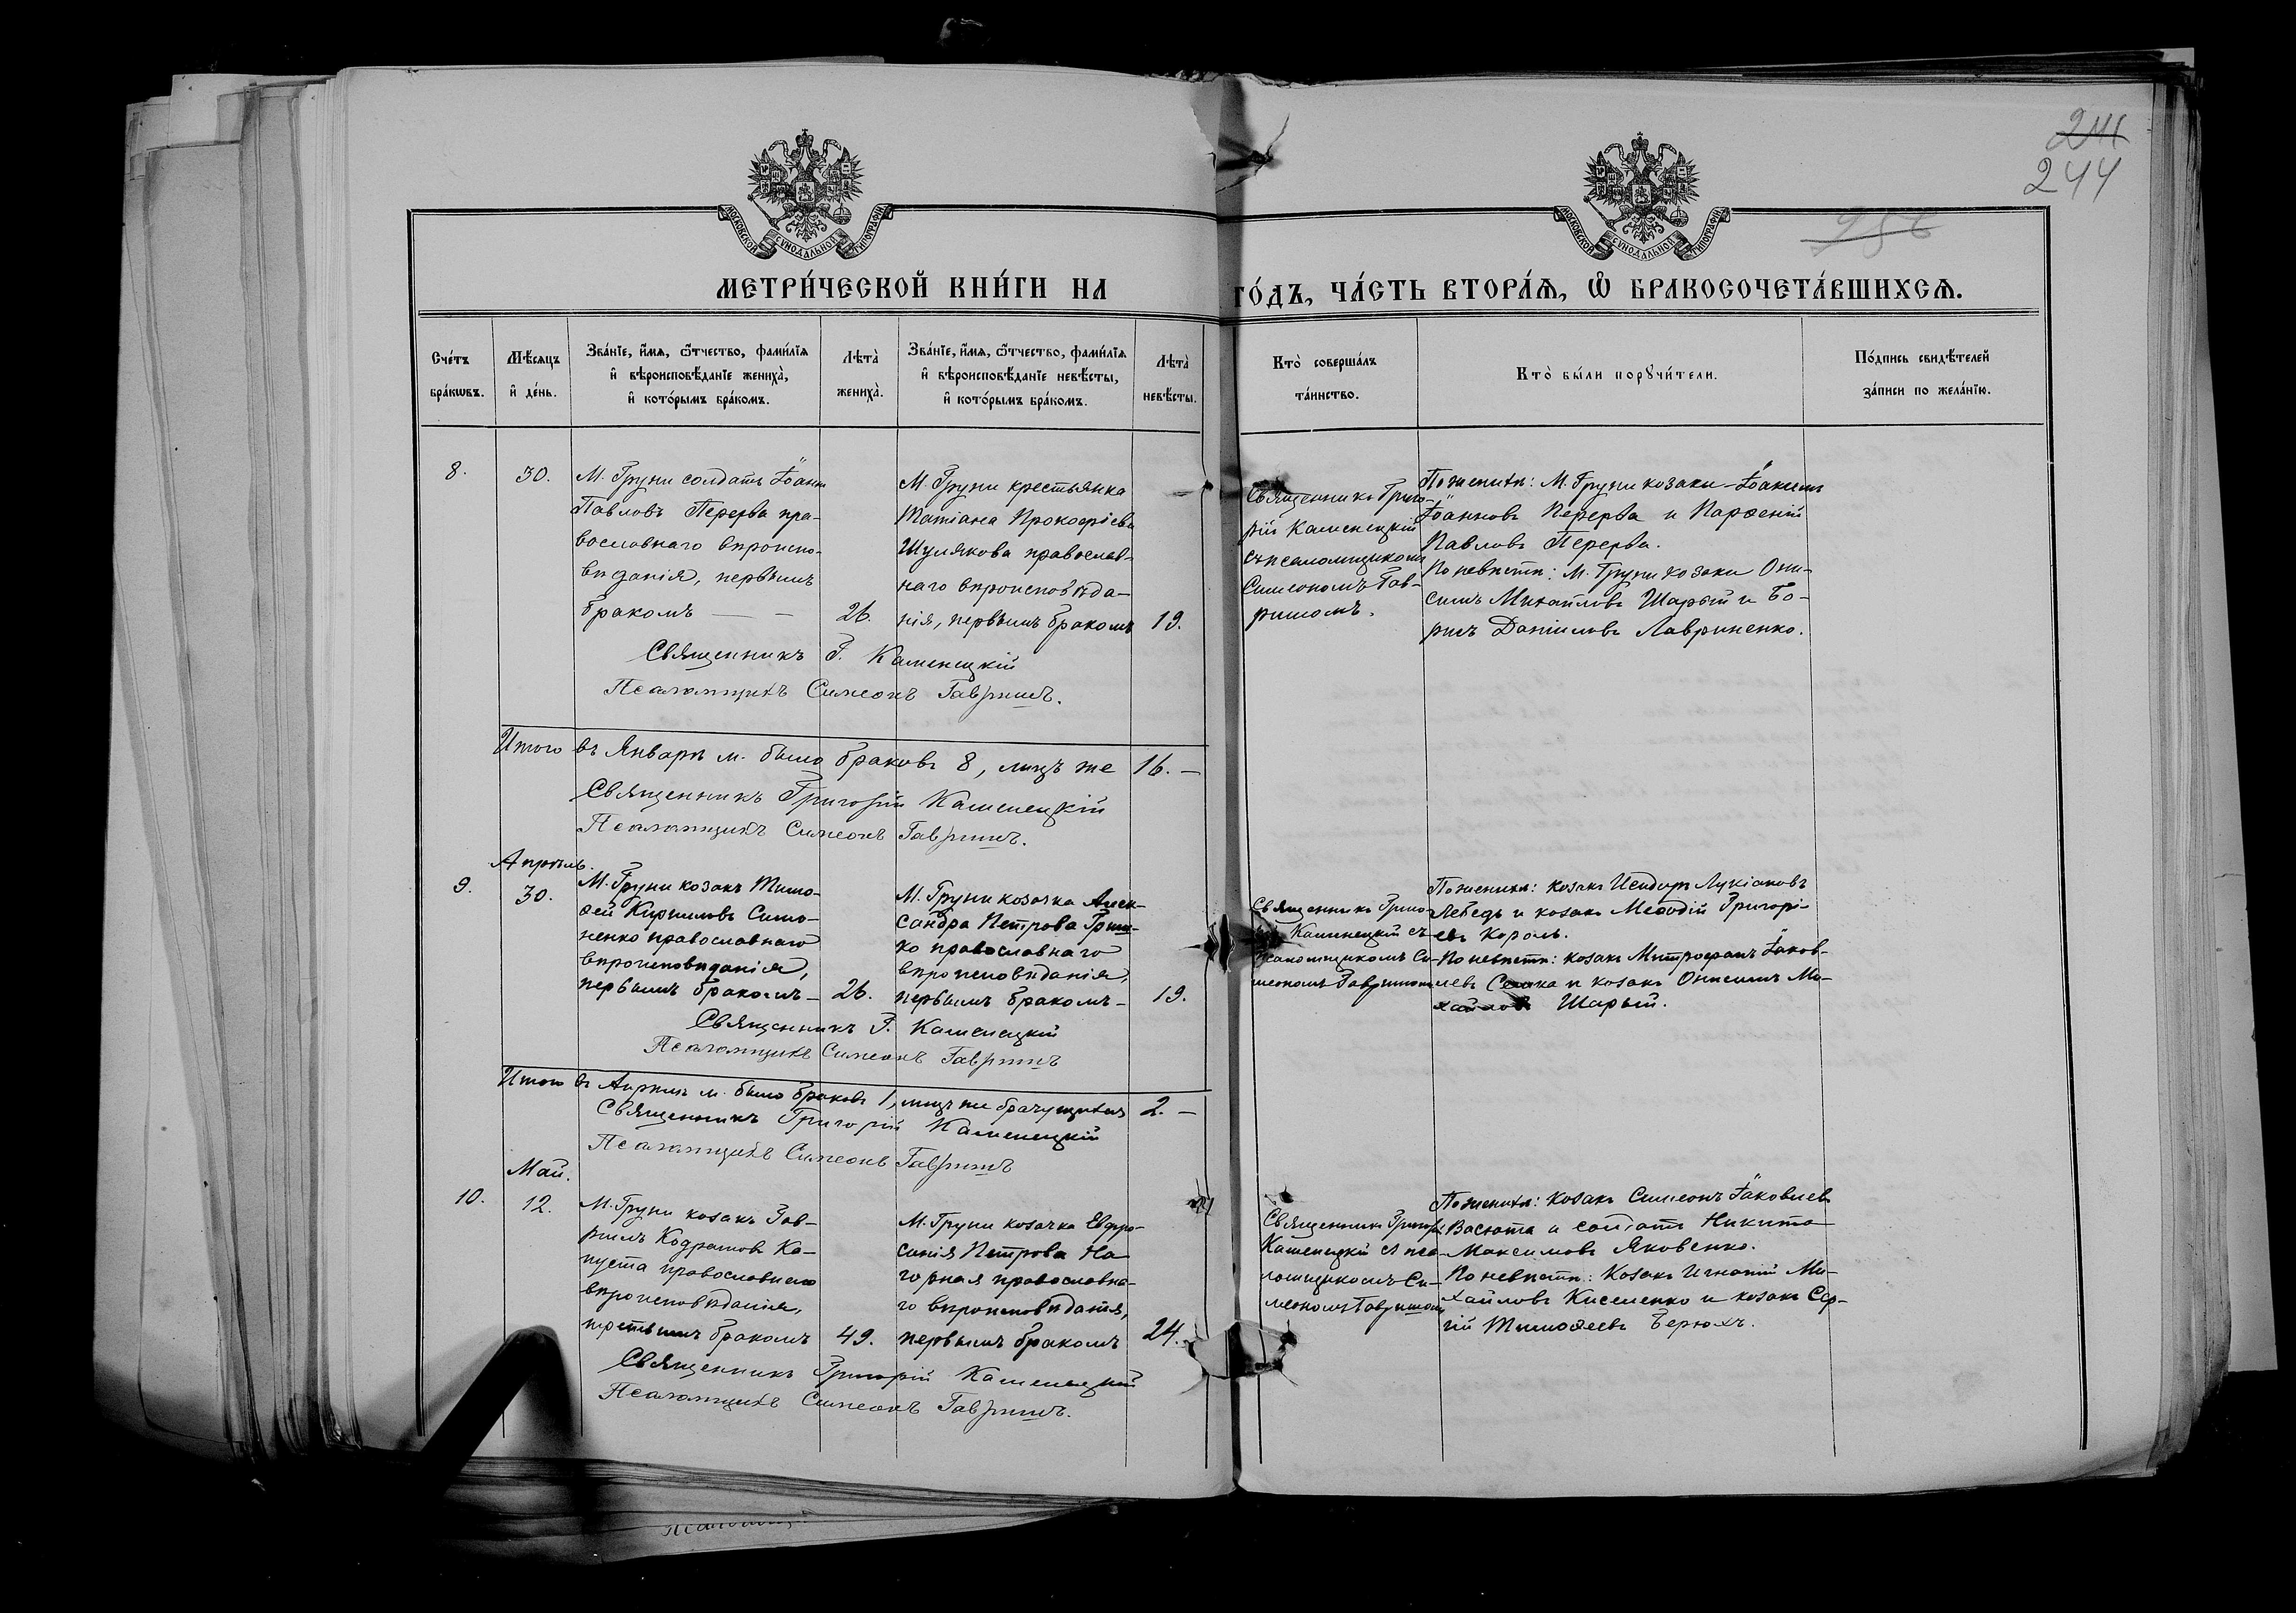 244
МОСКОВСКОЙ СУНОДАЛЬНОЙ ТИПОГРАФІИ
МОСКОВСКОЙ СУНОДАЛЬНОЙ ТИПОГРАФІИ
МЕТРИ́ЧЕСКОЙ КНИ́ГИ НА ГО́ДЪ, ЧА́СТЬ ВТОРА́Ѧ, Ѽ БРАКОСОЧЕТА́ВШИХСѦ.
Сче́тъ
бра́кѡвъ.
Мѣ́сяцъ
и҆ де́нь.
Зва́нїе, и҆́мѧ, ѻ҆́тчество, фами́лїѧ
и҆ вѣроисповѣ́данїе жениха̀,
и҆ кото́рымъ бра́комъ.
Лѣ́та̀
жениха̀.
Зва́нїе, и҆́мѧ, ѻ҆́тчество, фами́лїѧ
и҆ вѣроисповѣ́данїе невѣ́сты,
и҆ кото́рымъ бра́комъ.
Лѣ́та̀
невѣ́сты.
Кто̀ соверша́лъ
та́инство.
Кто̀ бы́ли порꙋчи́тели.
По́дпись свидѣ́телей
за́писи по жела́нїю.
8.
30.
М. Груни солдатъ Іоаннъ
Павловъ Перерва пра-
вославнаго вѣроиспо-
вѣданія, первымъ
бракомъ — —
26.
М. Груни крестьянка
Татіана Прокофіева
Шулякова православ-
наго вѣроисповѣда-
нія, первымъ бракомъ
19.
Священникъ Григо-
рій Каменецкій
съ псаломщикомъ
Симеономъ Гав-
ришомъ.
По женихѣ: М. Груни козаки Іоакимъ
Іоанновъ Перерва и Парѳеній
Павловъ Перерва.
По невѣстѣ: М. Груни козаки Они-
симъ Михайловъ Шарый и Бо-
рисъ Даніиловъ Лавриненко.
Священникъ Г. Каменецкій
Псаломщикъ Симеонъ Гавришъ.
Итого въ Январѣ м. было браковъ 8, лицъ же 16. —
Священникъ Григорій Каменецкій
Псаломщикъ Симеонъ Гавришъ.
Апрѣль.
9.
30.
М. Груни козакъ Тимо-
ѳей Кирилловъ Симо-
ненко православнаго
вѣроисповѣданія,
первымъ бракомъ —
26.
М. Груни козачка Алек-
сандра Петрова Гриш-
ко православнаго
вѣроисповѣданія,
первымъ бракомъ —
19.
Священникъ Григо-
Каменецкій съ
псаломщикомъ Си-
меономъ Гавришомъ
По женихѣ: козакъ Исидоръ Лукіановъ
Лебедь и козакъ Меѳодій Григорі-
евъ Король.
По невѣстѣ: козакъ Митрофанъ Іаков-
левъ и козакъ Онисимъ Ми-
хайловъ Шарый.
Священникъ Г. Каменецкій
Псаломщикъ Симеонъ Гавришъ
Итого въ Апрѣлѣ м. было браковъ 1, лицъ же брачущихся 2. —
Священникъ Григорій Каменецкій
Псаломщикъ Симеонъ Гавришъ
Май.
10.
12.
М. Груни козакъ Гав-
риилъ Кодратовъ Ка-
пуста православнаго
вѣроисповѣданія,
третьимъ бракомъ
49.
М. Груни козачка Евфро-
синія Петрова На-
горная православна-
го вѣроисповѣданія,
первымъ бракомъ
24.
Священникъ Григорій
Каменецкій съ пса-
ломщикомъ Си-
меономъ Гавришомъ
По женихѣ: козакъ Симеонъ Іаковлев
Васюта и солдатъ Никита
Максимовъ Яковенко.
По невѣстѣ: козакъ Игнатій Ми-
хайловъ Киселенко и козакъ Сер-
гій Тимоѳеевъ Берюхъ.
Священникъ Григорій Каменецкій
Псаломщикъ Симеонъ Гавришъ.